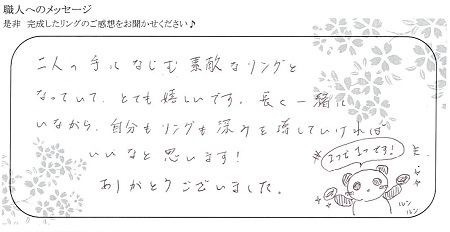 職人へのメッセージ
是非 完成したリングのご感想をお聞かせください♪
二人の手になじむ素敵なリングと
なっていて、とても嬉しいです。長く一緒に
いながら、自分もリングも深みを増していければ
いいなと思います!
ありがとうございました。
2つで1つです!
ルン
ルン